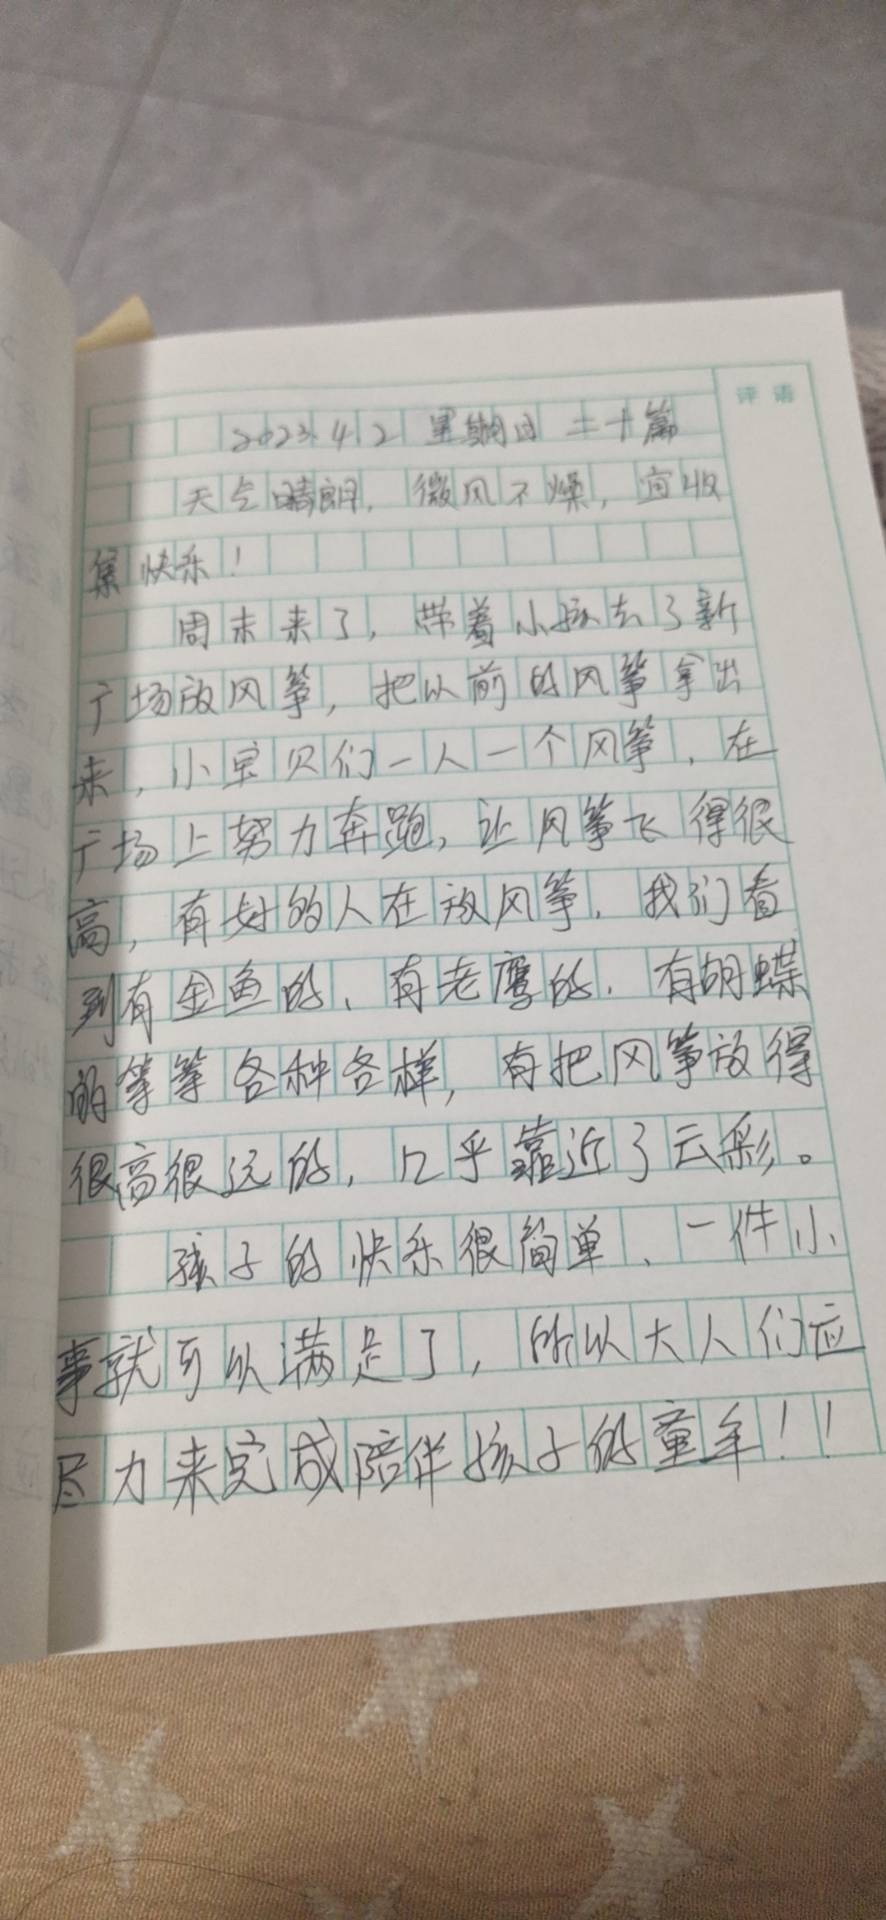 评语
2023.4.2 星期日 二十篇
天气晴朗，微风不燥，宜收
集快乐！
周末来了，带着小孩去了新
广场放风筝，把以前的风筝拿出
来，小宝贝们一人一个风筝，在
广场上努力奔跑，让风筝飞得很
高，有好的人在放风筝，我们看
到有金鱼的、有老鹰的，有胡蝶
的等等各种各样，有把风筝放得
很高很远的，几乎靠近了云彩。
孩子的快乐很简单、一件小
事就可以满足了，所以大人们应
尽力来完成陪伴孩子的童年！！